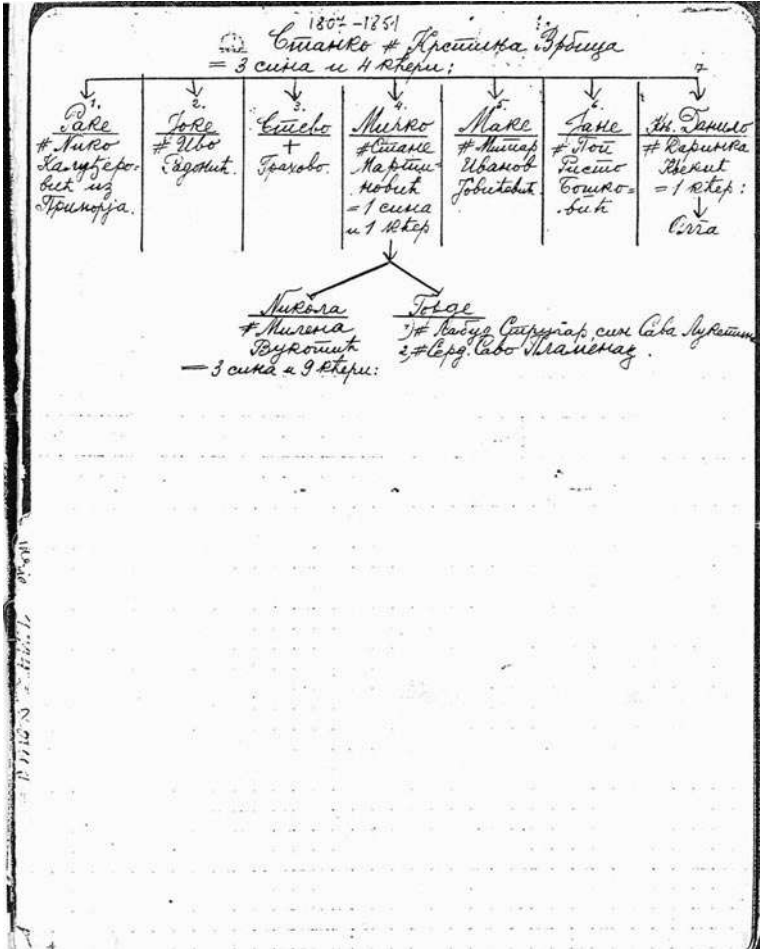 1807-1851
Станко # Крстиња Врбица
= 3 сина и 4 кћери:
1.
Раке
# Нико
Калуђеро-
вић из
Приморја.
2.
Јоке
# Иво
Радонић.
3.
Стево
+
Грахово.
4.
Мирко
# Стане
Марти-
новић
= 1 сина
и 1 кћер
5.
Маке
# Митар
Иванов
Јовићевић.
6.
Јане
# Поп
Ристо
Бошко-
вић
7
Кн. Данило
# Даринка
Квекић
= 1 кћер:
Олга
Никола
# Милена
Вукотић
= 3 сина и 9 кћери:
Говде
1) # Лабуд Стругар, син Сава Лукетин
2, # Серд. Саво Пламенац.